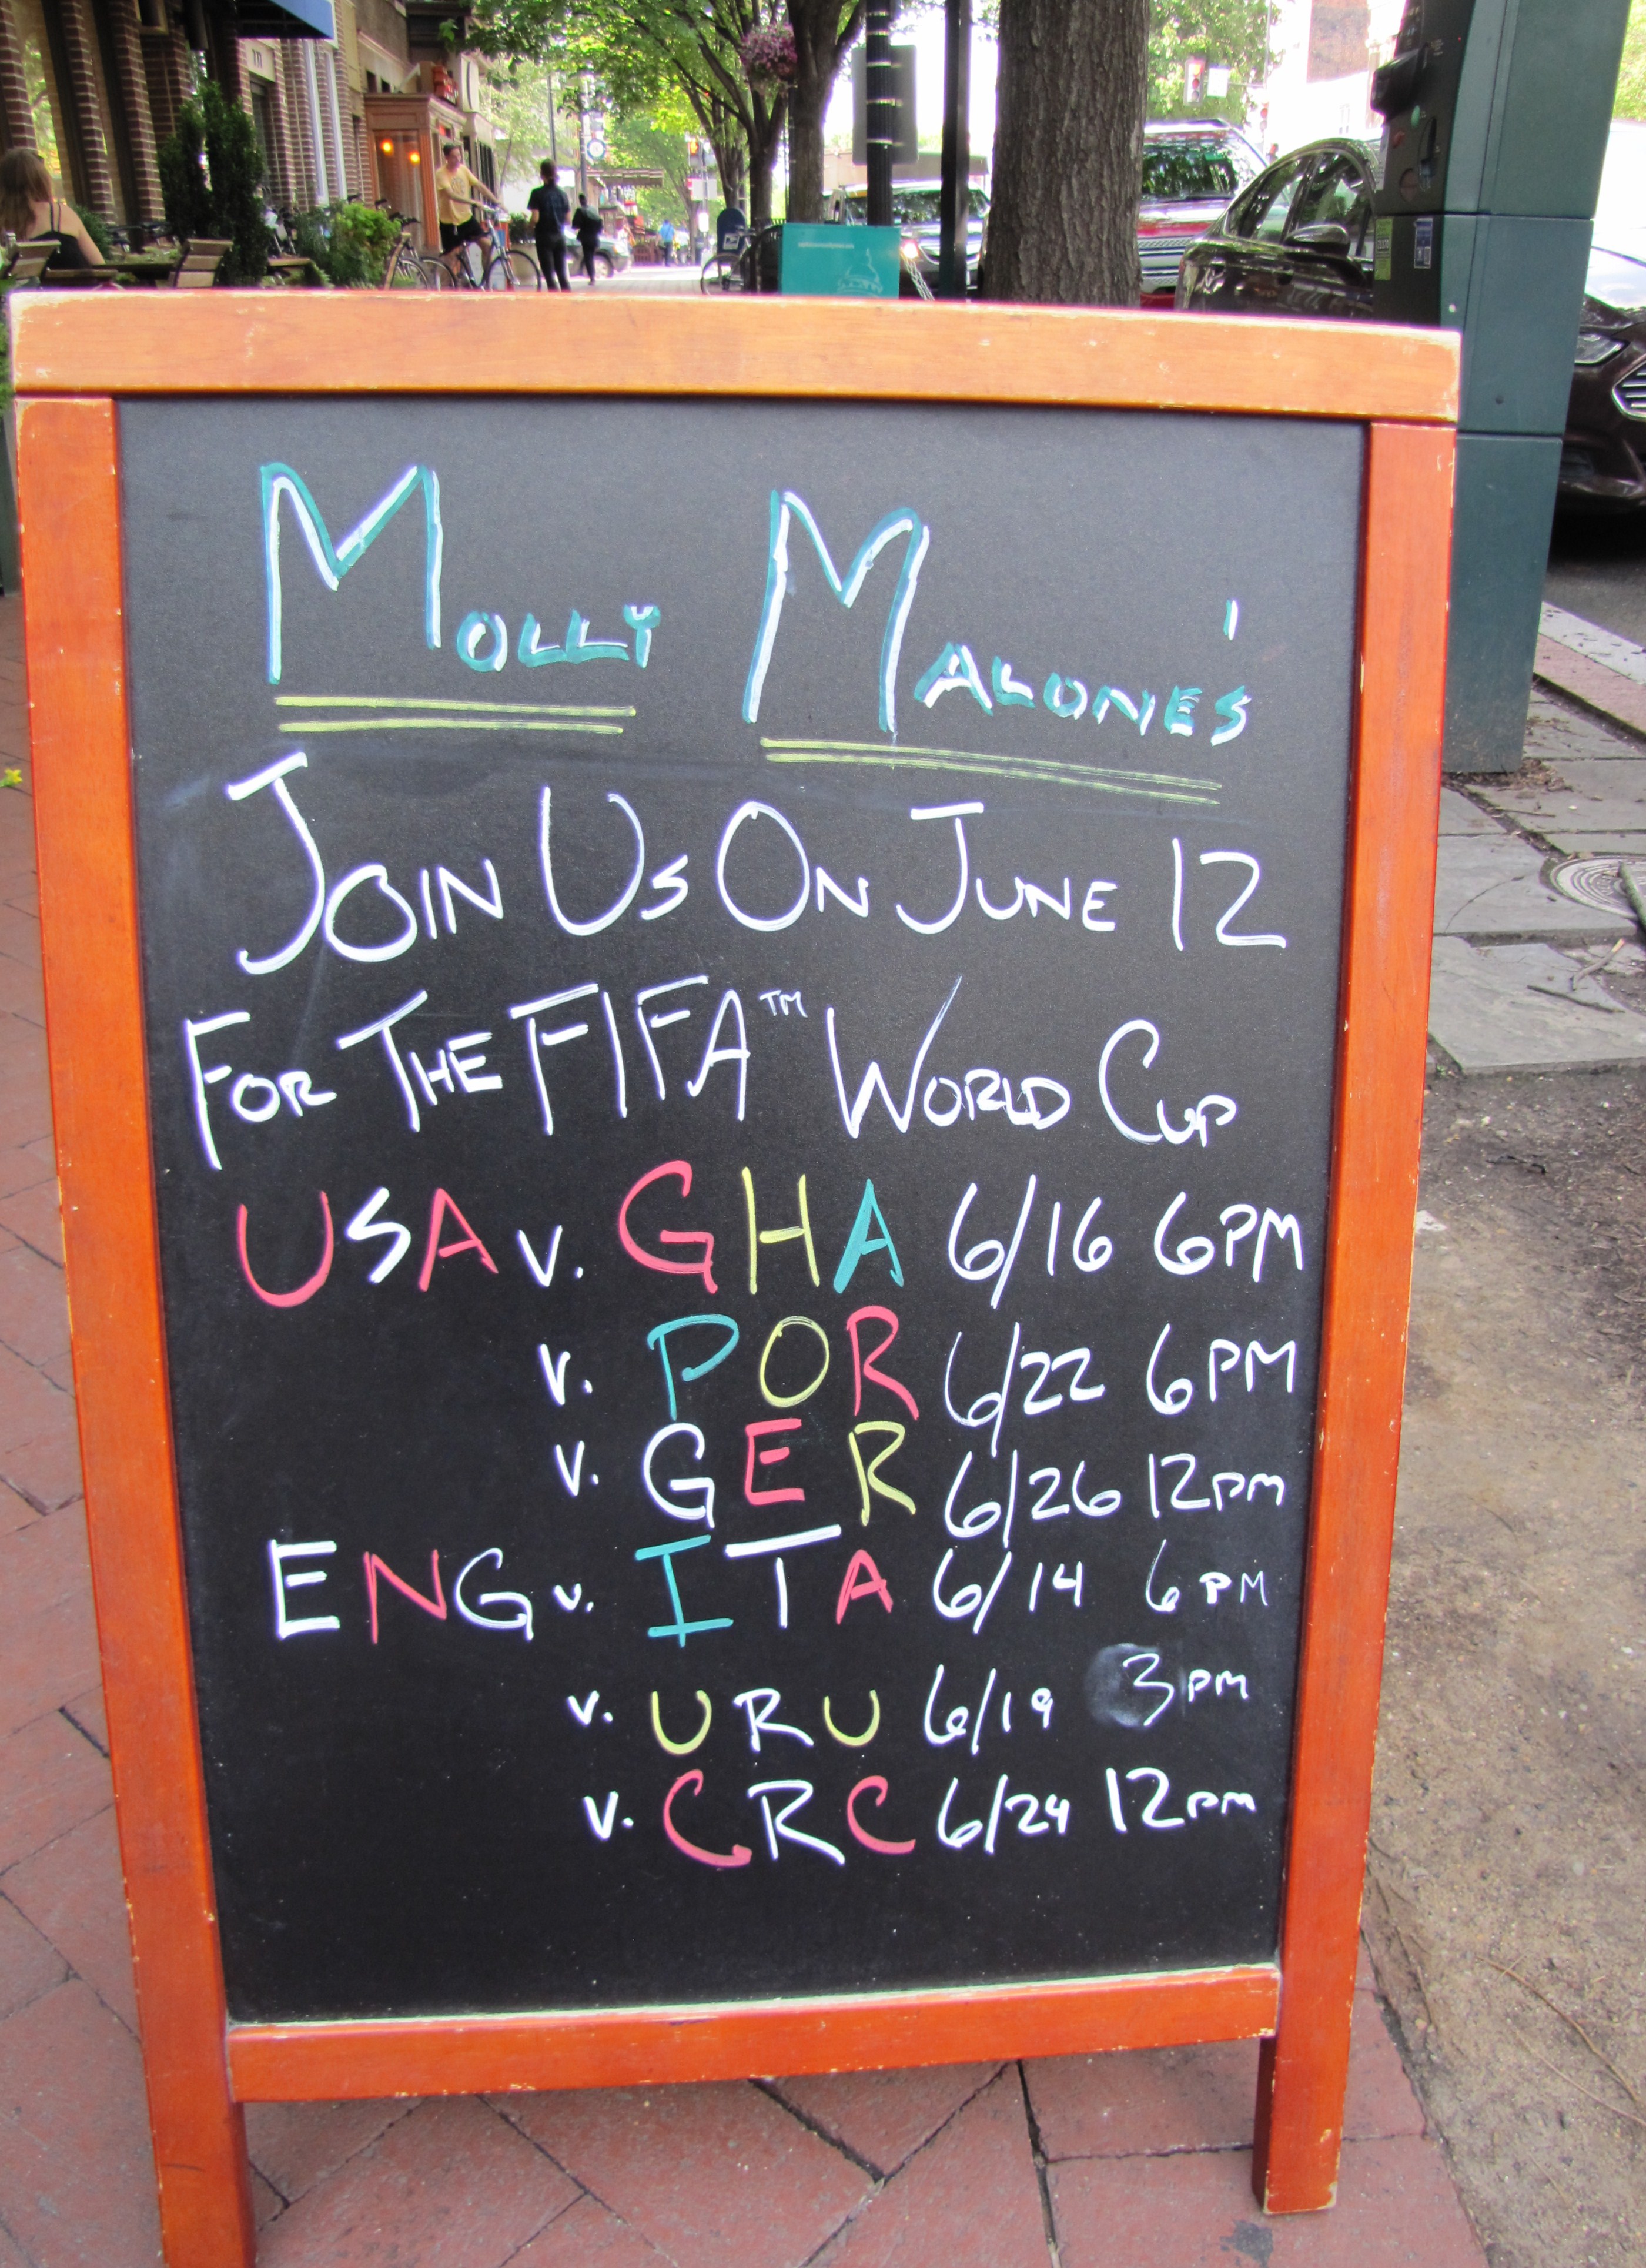 MOLLY MALONES'
JOIN US ON JUNE 12
FOR THE FIFA™ WORLD CUP
USA v. GHA 6/16 6PM
v. POR 6/22 6PM
v. GER 6/26 12PM
ENG v. ITA 6/14 6PM
v. URU 6/19 3PM
v. CRC 6/24 12PM